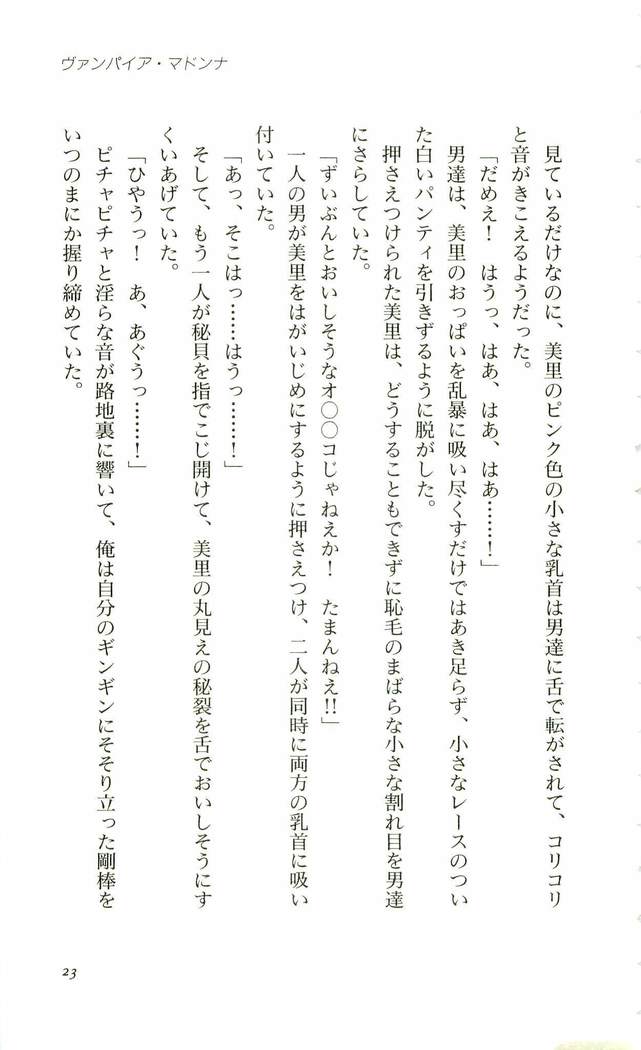 ヴァンパイア・マドンナ
見ているだけなのに、美里のピンク色の小さな乳首は男達に舌で転がされて、コリコリ
と音がきこえるようだった。
「だめえ！　はうっ、はあ、はあ、はあ……！」
男達は、美里のおっぱいを乱暴に吸い尽くすだけではあき足らず、小さなレースのつい
た白いパンティを引きずるように脱がした。
押さえつけられた美里は、どうすることもできずに恥毛のまばらな小さな割れ目を男達
にさらしていた。
「ずいぶんとおいしそうなオ〇〇コじゃねえか！　たまんねえ!!」
一人の男が美里をはがいじめにするように押さえつけ、二人が同時に両方の乳首に吸い
付いていた。
「あっ、そこはっ……はうっ……！」
そして、もう一人が秘貝を指でこじ開けて、美里の丸見えの秘裂を舌でおいしそうにす
くいあげていた。
「ひやうっ！　あ、あぐうっ……！」
ピチャピチャと淫らな音が路地裏に響いて、俺は自分のギンギンにそそり立った剛棒を
いつのまにか握り締めていた。
23